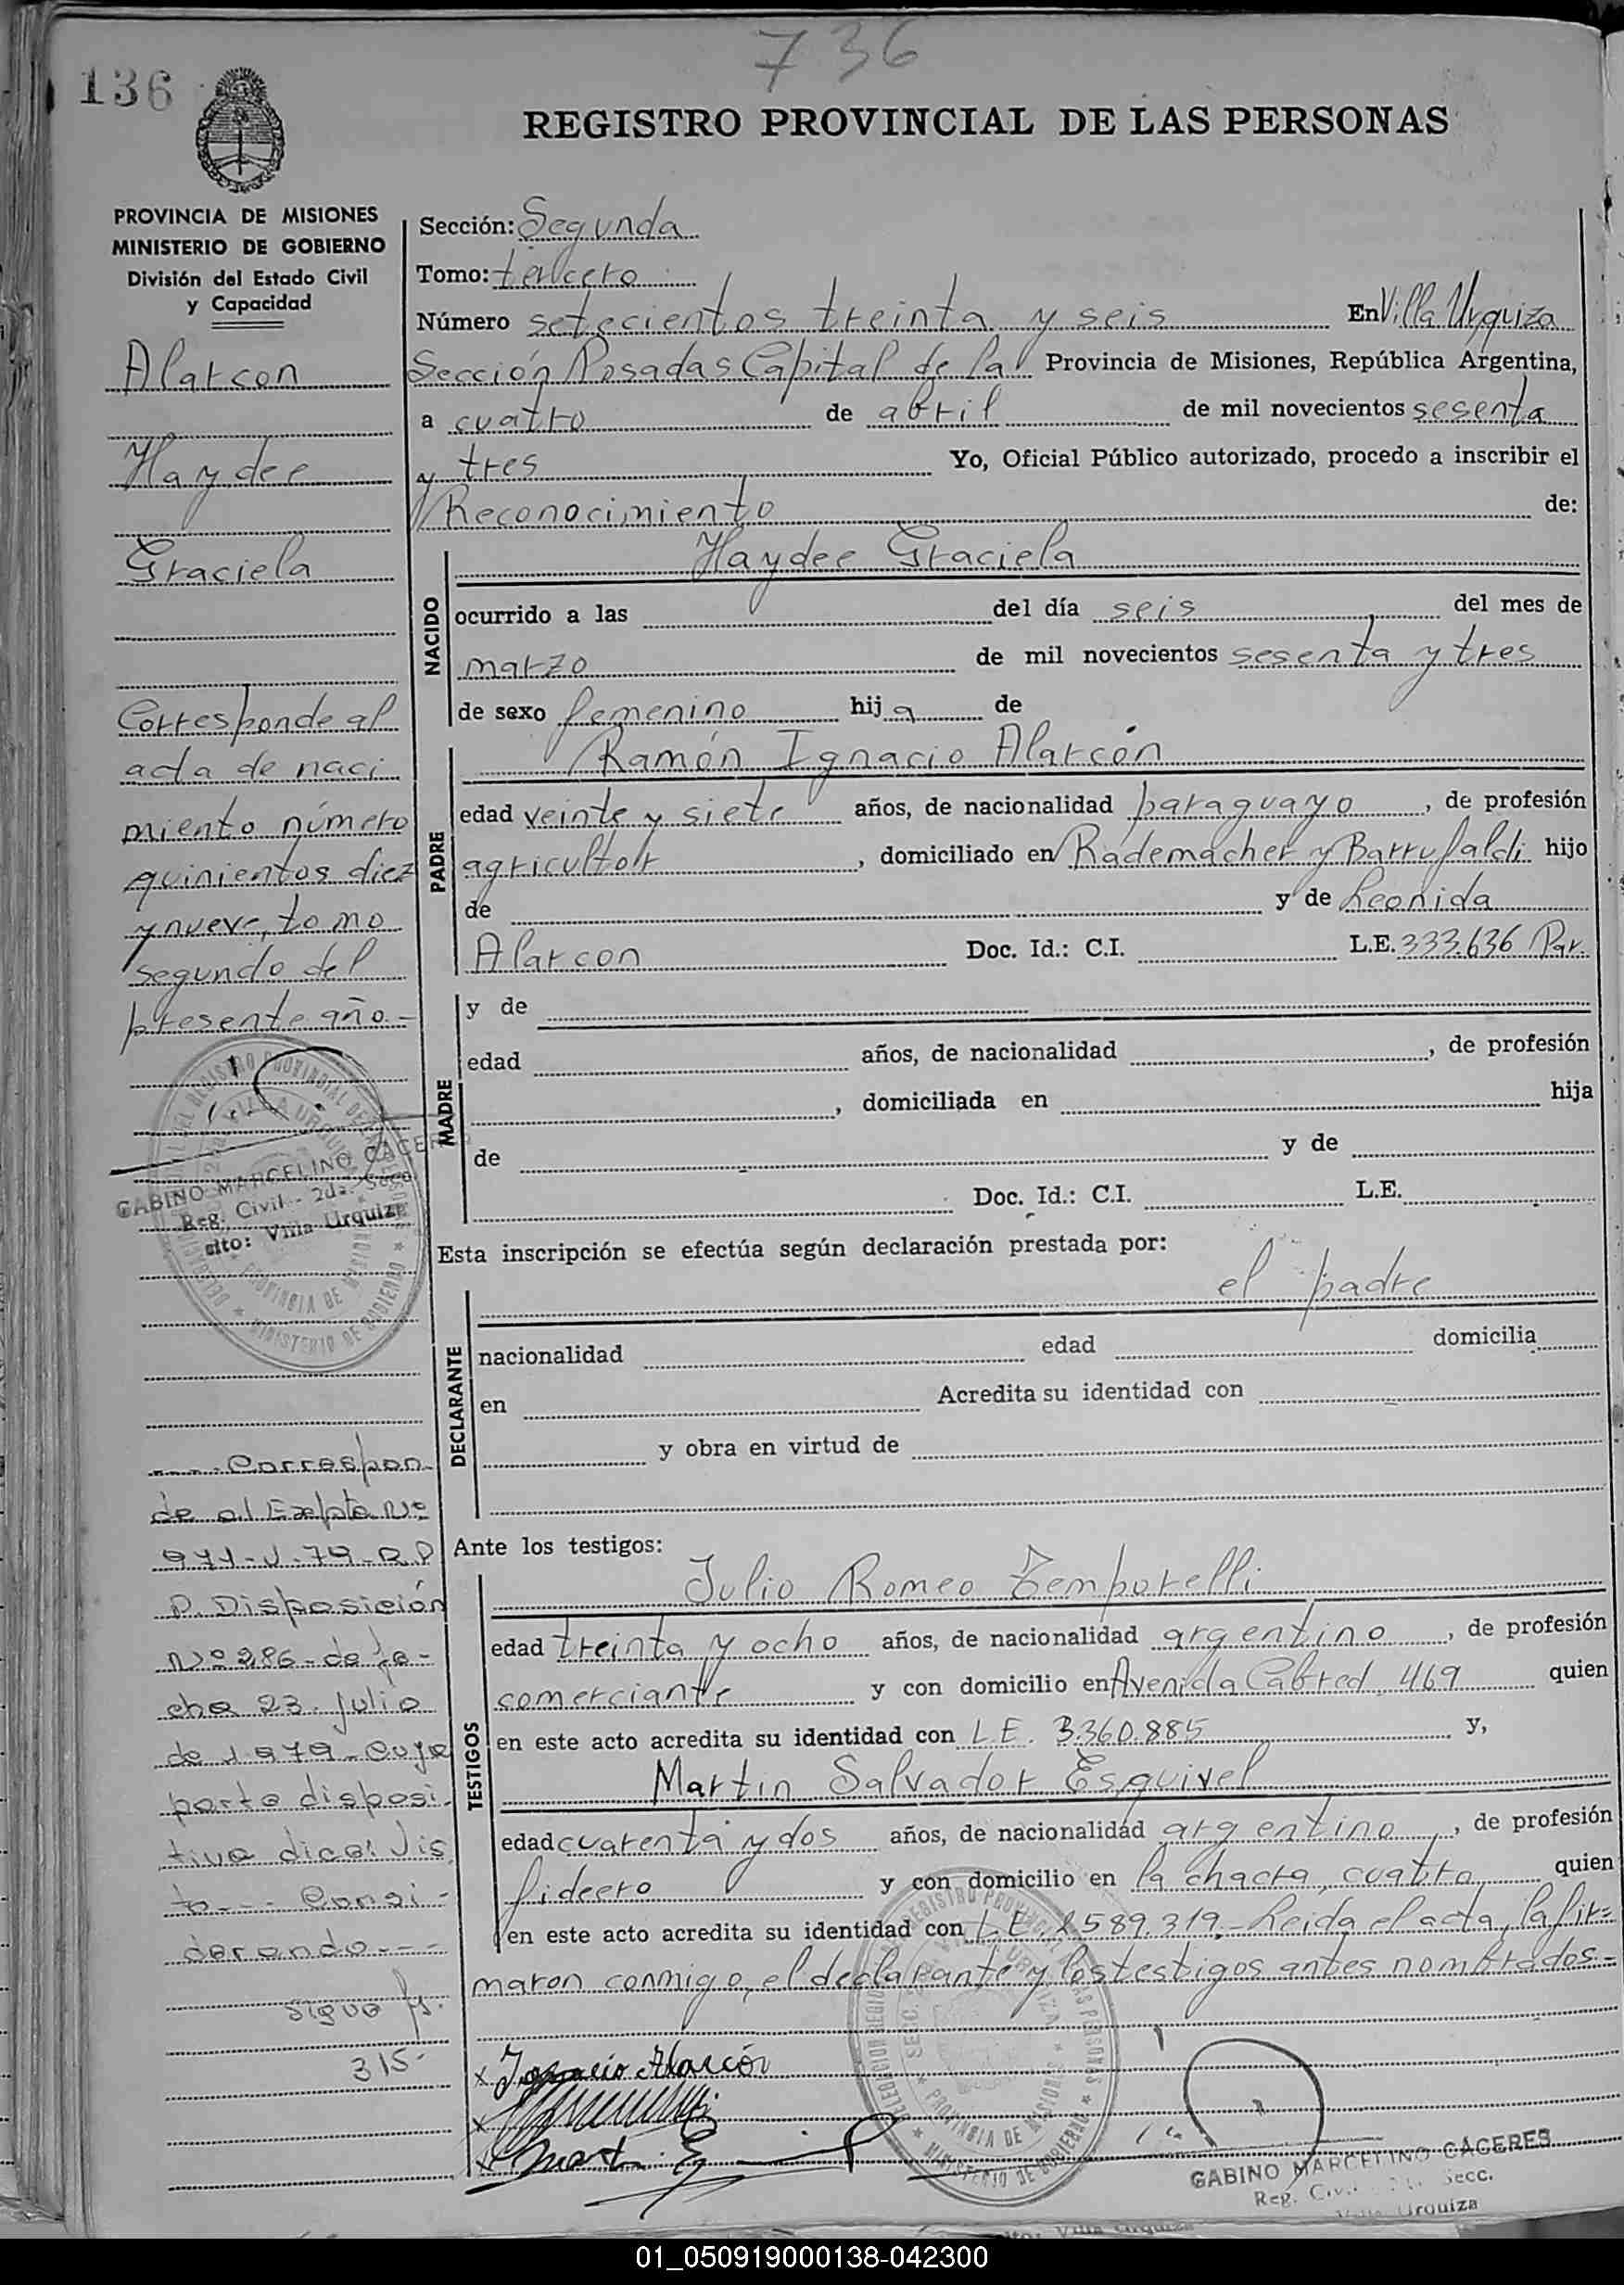 736
136
REGISTRO PROVINCIAL DE LAS PERSONAS
PROVINCIA DE MISIONES
MINISTERIO DE GOBIERNO
División del Estado Civil
y Capacidad
Alarcon
Haydee
Graciela
Corresponde al
acta de naci
miento número
quinientos diez
y nueve, tomo
segundo del
presente año.-
GABINO MARCELINO CACERES
Reg. Civil - 2da. Secc
Villa Urquiza
---- Correspon-
de al Expte Nº
971-J-79-R.P
P. Disposición
Nº 286-de fe-
cha 23. julio
de 1979-cuya
parte disposi-
tiva dice: Vis
to--- Consi-
derando---
sigue fs.
315-
Sección: Segunda
Tomo: tercero
Número setecientos treinta y seis En Villa Urquiza
Sección Posadas Capital de la Provincia de Misiones, República Argentina,
a cuatro de abril de mil novecientos sesenta
y tres Yo, Oficial Público autorizado, procedo a inscribir el
Reconocimiento de:
NACIDO
Haydee Graciela
ocurrido a las del día seis del mes de
marzo de mil novecientos sesenta y tres
de sexo femenino hija de
PADRE
Ramón Ignacio Alarcón
edad veinte y siete años, de nacionalidad paraguayo, de profesión
agricultor, domiciliado en Rademacher y Barrufaldi hijo
de y de Leonida
Alarcon Doc. Id.: C.I. L.E. 333.636 Par.
MADRE
y de
edad años, de nacionalidad , de profesión
, domiciliada en hija
de y de
Doc. Id.: C.I. L.E.
Esta inscripción se efectúa según declaración prestada por:
DECLARANTE
el padre
nacionalidad edad domicilia
en Acredita su identidad con
y obra en virtud de
Ante los testigos:
TESTIGOS
Julio Romeo Zemporelli
edad treinta y ocho años, de nacionalidad argentino, de profesión
comerciante y con domicilio en Avenida Cabred 469 quien
en este acto acredita su identidad con L.E. 3.360.885 y,
Martin Salvador Esquivel
edad cuarenta y dos años, de nacionalidad argentino, de profesión
fideero y con domicilio en la chacra cuatro quien
en este acto acredita su identidad con L.E. 589.319.- Leida el acta, la fir=
maron conmigo, el declarante y los testigos antes nombrados.-
x Ignacio Alarcón
GABINO MARCELINO CACERES
Reg. Civil Secc.
Villa Urquiza
01_050919000138-042300